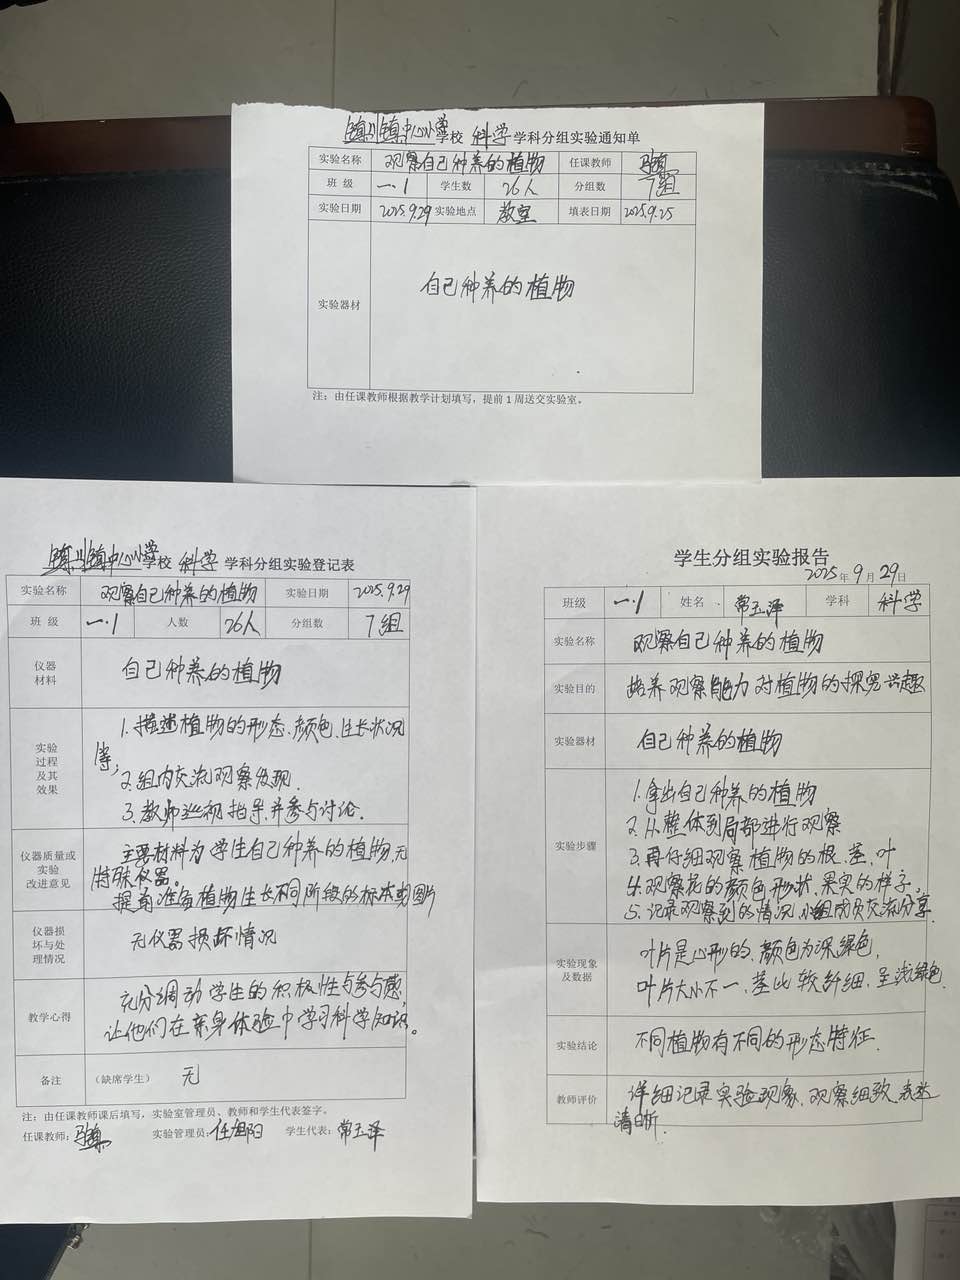 镇川镇中心小学学校 科学 学科分组实验通知单
实验名称 观察自己种养的植物 任课教师
班 级 一.1 学生数 26人 分组数 7组
实验日期 2025.9.29 实验地点 教室 填表日期 2025.9.25
实验器材 自己种养的植物
注：由任课教师根据教学计划填写，提前 1 周送交实验室。
镇川镇中心小学学校 科学 学科分组实验登记表
实验名称 观察自己种养的植物 实验日期 2025.9.29
班 级 一.1 人数 26人 分组数 7组
仪器
材料
自己种养的植物
实验
过程
及其
效果
1.描述植物的形态、颜色、生长状况
等；
2.组内交流观察发现.
3.教师巡视指导,并参与讨论.
仪器质量或
实验
改进意见
主要材料为学生自己种养的植物,无
特殊仪器。
提前准备植物生长不同阶段的标本或图片
仪器损
坏与处
理情况
无仪器损坏情况
教学心得
充分调动学生的积极性与参与感,
让他们在亲身体验中学习科学知识。
备注 （缺席学生） 无
注：由任课教师课后填写，实验室管理员、教师和学生代表签字。
任课教师: 实验管理员:任旭阳 学生代表:常玉泽
学生分组实验报告
2025年 9 月 29日
班级 一.1 姓名 常玉泽 学科 科学
实验名称 观察自己种养的植物
实验目的 培养观察能力对植物的探究兴趣
实验器材 自己种养的植物
实验步骤
1.拿出自己种养的植物
2.从整体到局部进行观察
3.再仔细观察植物的根、茎、叶
4.观察花的颜色形状、果实的样子,
5.记录观察到的情况,小组成员交流分享.
实验现象
及数据
叶片是心形的、颜色为深绿色,
叶片大小不一、茎比较纤细、呈浅绿色.
实验结论 不同植物有不同的形态特征.
教师评价 详细记录实验现象、观察细致、表达
清晰.